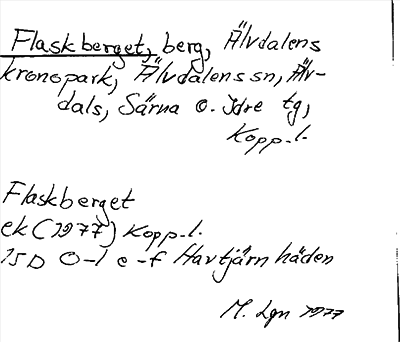 Flaskberget, berg, Älvdalens
kronopark, Älvdalens sn, Älv-
dals, Särna o. Idre tg,
Kopp. l.
Flaskberget
ek (1977) Kopp. l.
15D 0-1 e-f Havtjärnhäden
M. Lgn 1977